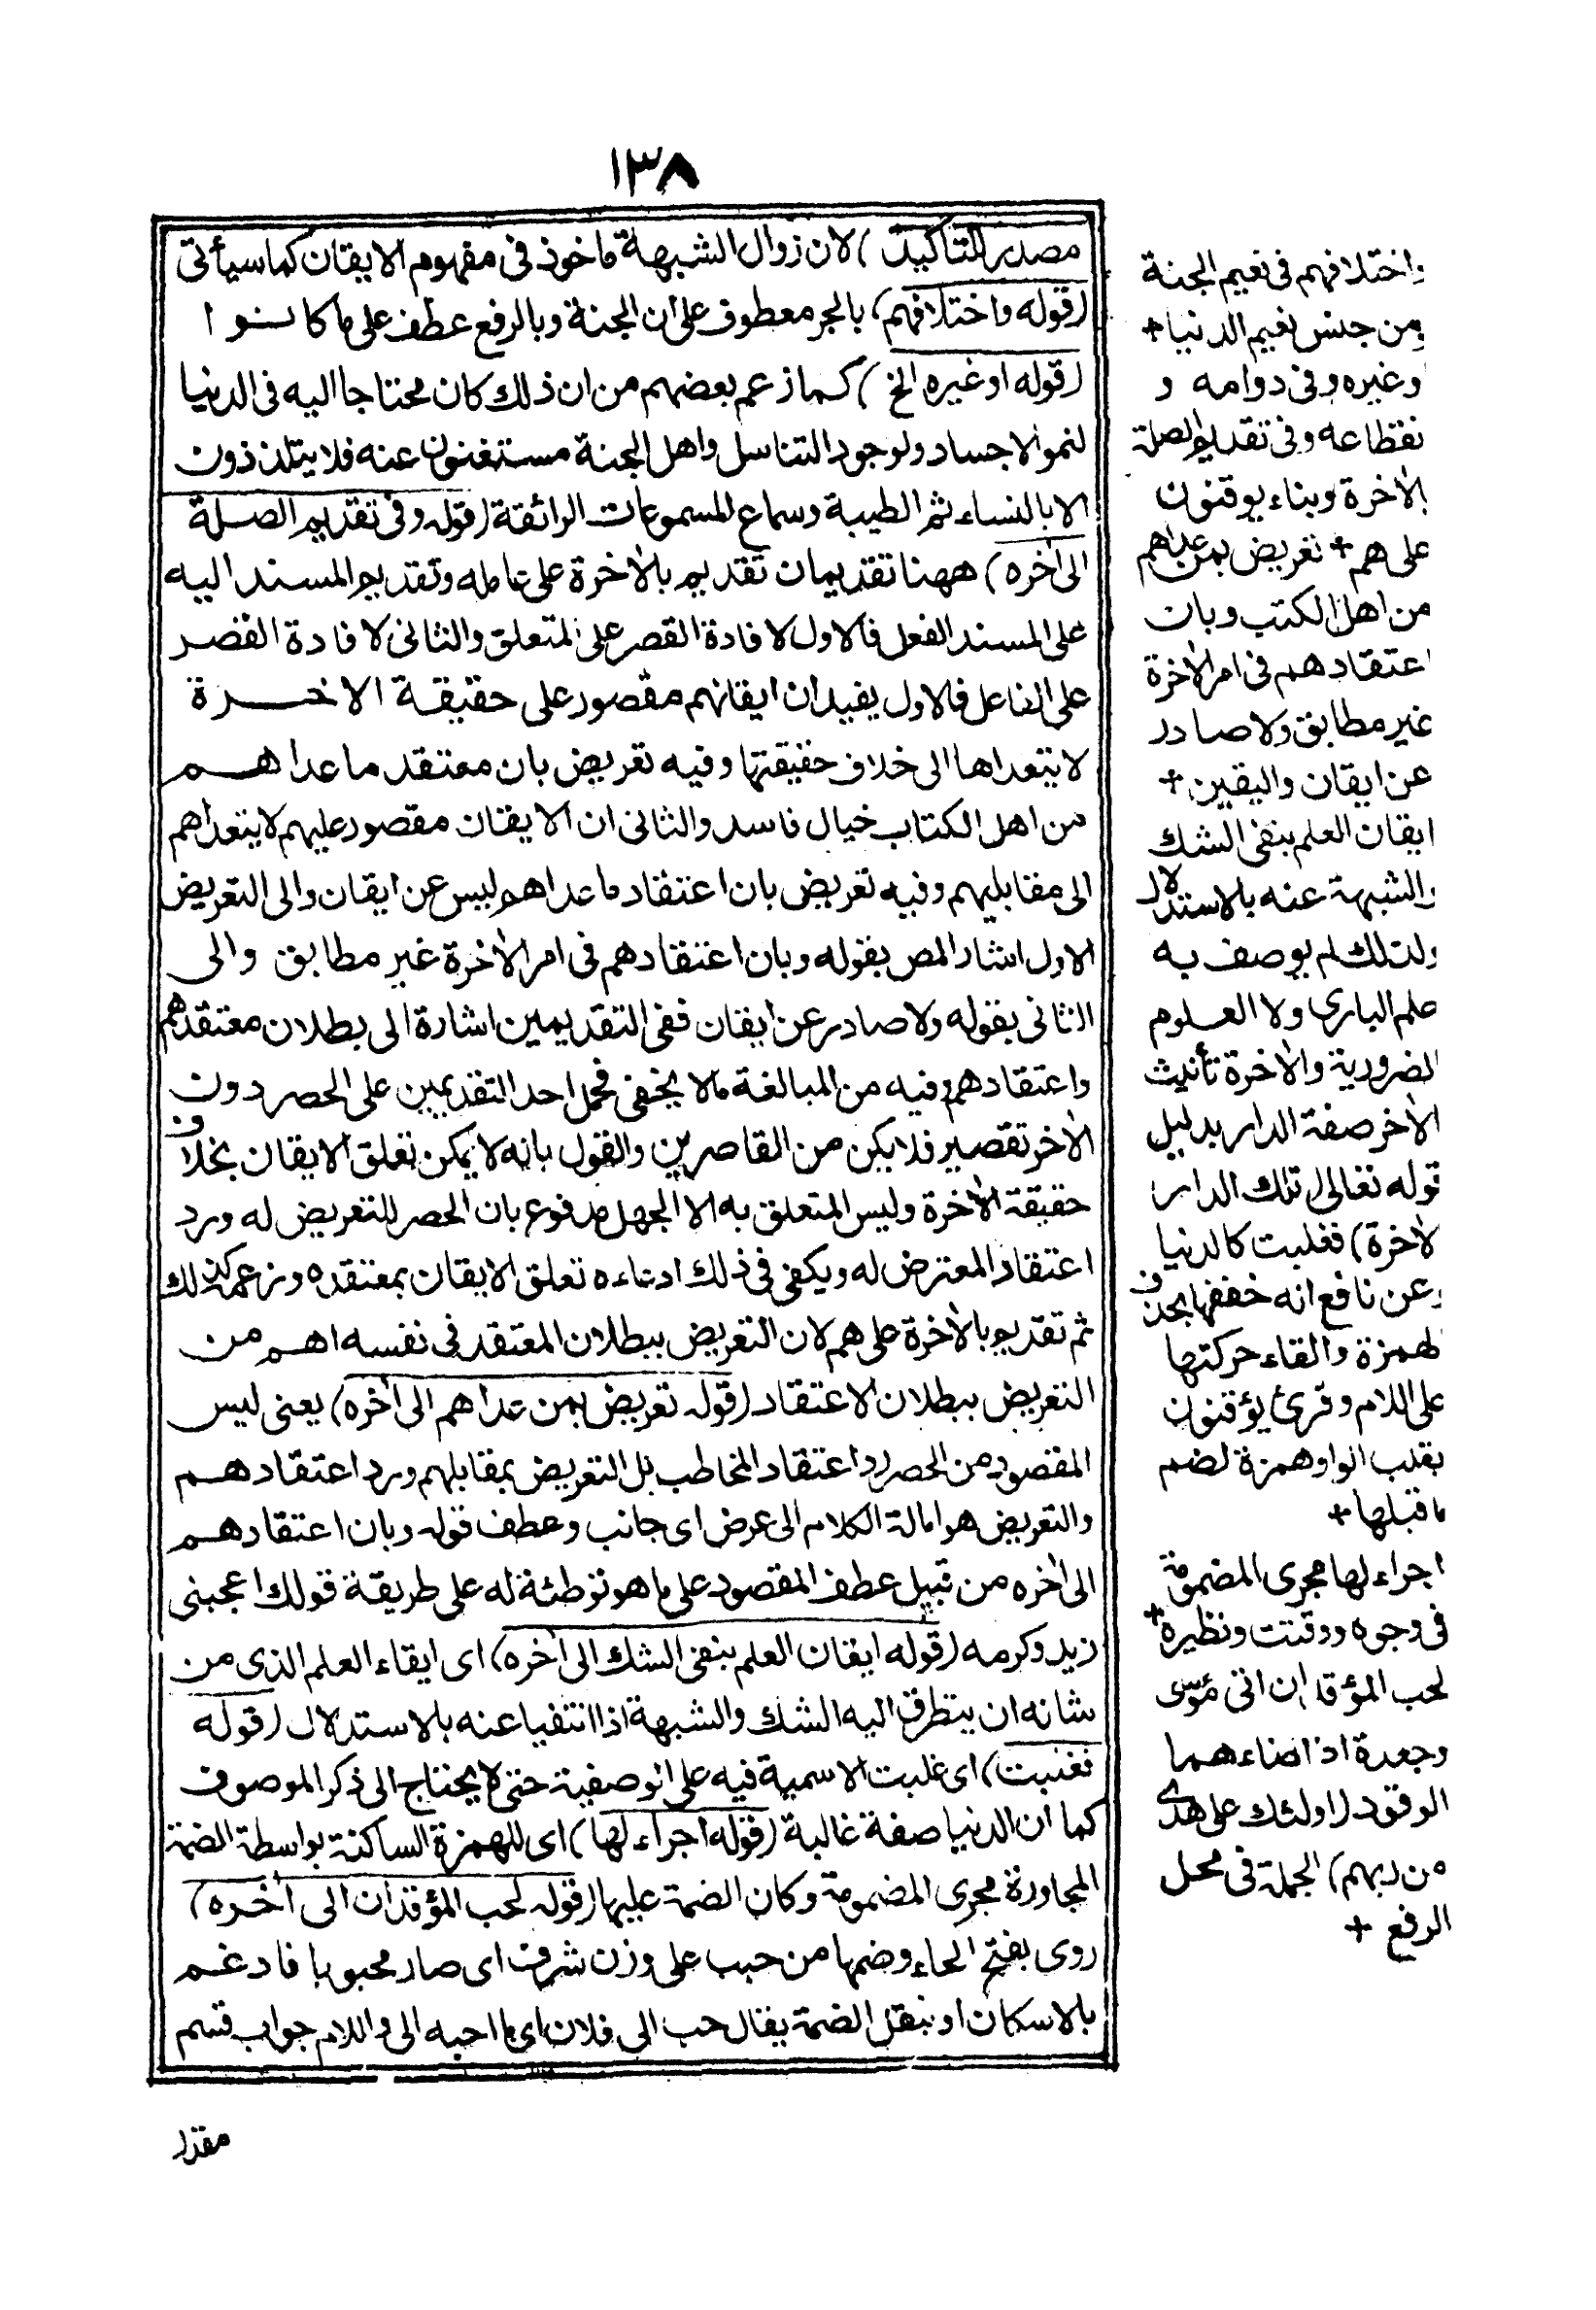 ١٣٨
مصدر للتأكيد) لان زوال الشبهة ماخوذ فى مفهوم الايقان كما سيأتى
(قوله واختلافهم) بالجر معطوف على ان الجنة وبالرفع عطف على ما كانوا
(قوله او غيره الخ) كما زعم بعضهم من ان ذلك كان محتاجا اليه فى الدنيا
لنمو الاجساد ولوجود التناسل واهل الجنة مستغنون عنه فلا يتلذذون
الا بالنساء ثم الطيبة وسماع المسموعات الرائقة (قوله وفى تقديم الصلة
الى آخره) ههنا تقديمان تقديم بالآخرة على عامله وتقديم المسند اليه
على المسند الفعل فالاول لافادة القصر على المتعلق والثانى لافادة القصر
على الفاعل فالاول يفيد ان ايقانهم مقصور على حقيقة الاخرة
لا يتعداها الى خلاف حقيقتها وفيه تعريض بان معتقد ما عداهم
من اهل الكتاب خيال فاسد والثانى ان الايقان مقصور عليهم لا يتعداهم
الى مقابليهم وفيه تعريض بان اعتقاد ما عداهم ليس عن ايقان والى التعريض
الاول اشار المص بقوله وبان اعتقادهم فى امر الآخرة غير مطابق والى
الثانى بقوله ولا صادر عن ايقان ففى التقديمين اشارة الى بطلان معتقدهم
واعتقادهم وفيه من المبالغة مالا يخفى فحمل احد التقديمين على الحصر دون
الآخر تقصير فلا يكن من القاصرين والقول بانه لا يمكن تعلق الايقان بخلاف
حقيقة الآخرة وليس المتعلق به الا الجهل مدفوع بان الحصر للتعريض له ورد
اعتقاد المعترض له ويكفى فى ذلك ادعاءه تعلق الايقان بمعتقده وزعمه كذلك
ثم تقديم بالآخرة على هم لان التعريض ببطلان المعتقد فى نفسه اهم من
التعريض ببطلان الاعتقاد (قوله تعريض بمن عداهم الى آخره) يعنى ليس
المقصود من الحصر رد اعتقاد المخاطب بل التعريض بمقابلهم ورد اعتقادهم
والتعريض هو امالة الكلام الى عرض اى جانب وعطف قوله وبان اعتقادهم
الى آخره من قبيل عطف المقصود على ما هو توطئة له على طريقة قولك اعجبنى
زيد وكرمه (قوله ايقان العلم بنفى الشك الى آخره) اى ايقاء العلم الذى من
شانه ان يتطرق اليه الشك والشبهة اذا انتفيا عنه بالاستدلال (قوله
فغلبت) اى غلبت الاسمية فيه على الوصفية حتى لا يحتاج الى ذكر الموصوف
كما ان الدنيا صفة غالبة (قوله اجراء لها) اى للهمزة الساكنة بواسطة الضمة
المجاورة مجرى المضمومة وكان الضمة عليها (قوله لحب المؤقدان الى آخره)
روى بفتح الحاء وضمها من حبب على وزن شرف اى صار محبوبا فادغم
بالاسكان او بنقل الضمة يقال حب الى فلان اى ما احبه الى واللام جواب قسم
مقدر
واختلافهم فى نعيم الجنة
من جنس نعيم الدنيا +
وغيره وفى دوامه و
نقطاعه وفى تقديم الصلة
الآخرة وبناء يوقنون
على هم + تعريض بمن عداهم
من اهل الكتب وبان
اعتقادهم فى امر الآخرة
غير مطابق ولا صادر
عن ايقان واليقين +
ايقان العلم بنفى الشك
والشبهة عنه بالاستدلال
ولذلك لم يوصف به
علم البارى ولا العلوم
الضرورية والآخرة تأنيث
الآخر صفة الدار بدليل
قوله تعالى (تلك الدار
لآخرة) فغلبت كالدنيا
وعن نافع انه خففها بحذف
لهمزة والقاء حركتها
على اللام وقرئ يؤقنون
بقلب الواو همزة لضم
ما قبلها +
اجراء لها مجرى المضمومة
فى وجوه ووقتت ونظيره +
لحب المؤقدان الى مؤسى
وجعدة اذ اضاءهما
الوقود (اولئك على هدى
من ربهم) الجملة فى محل
الرفع +